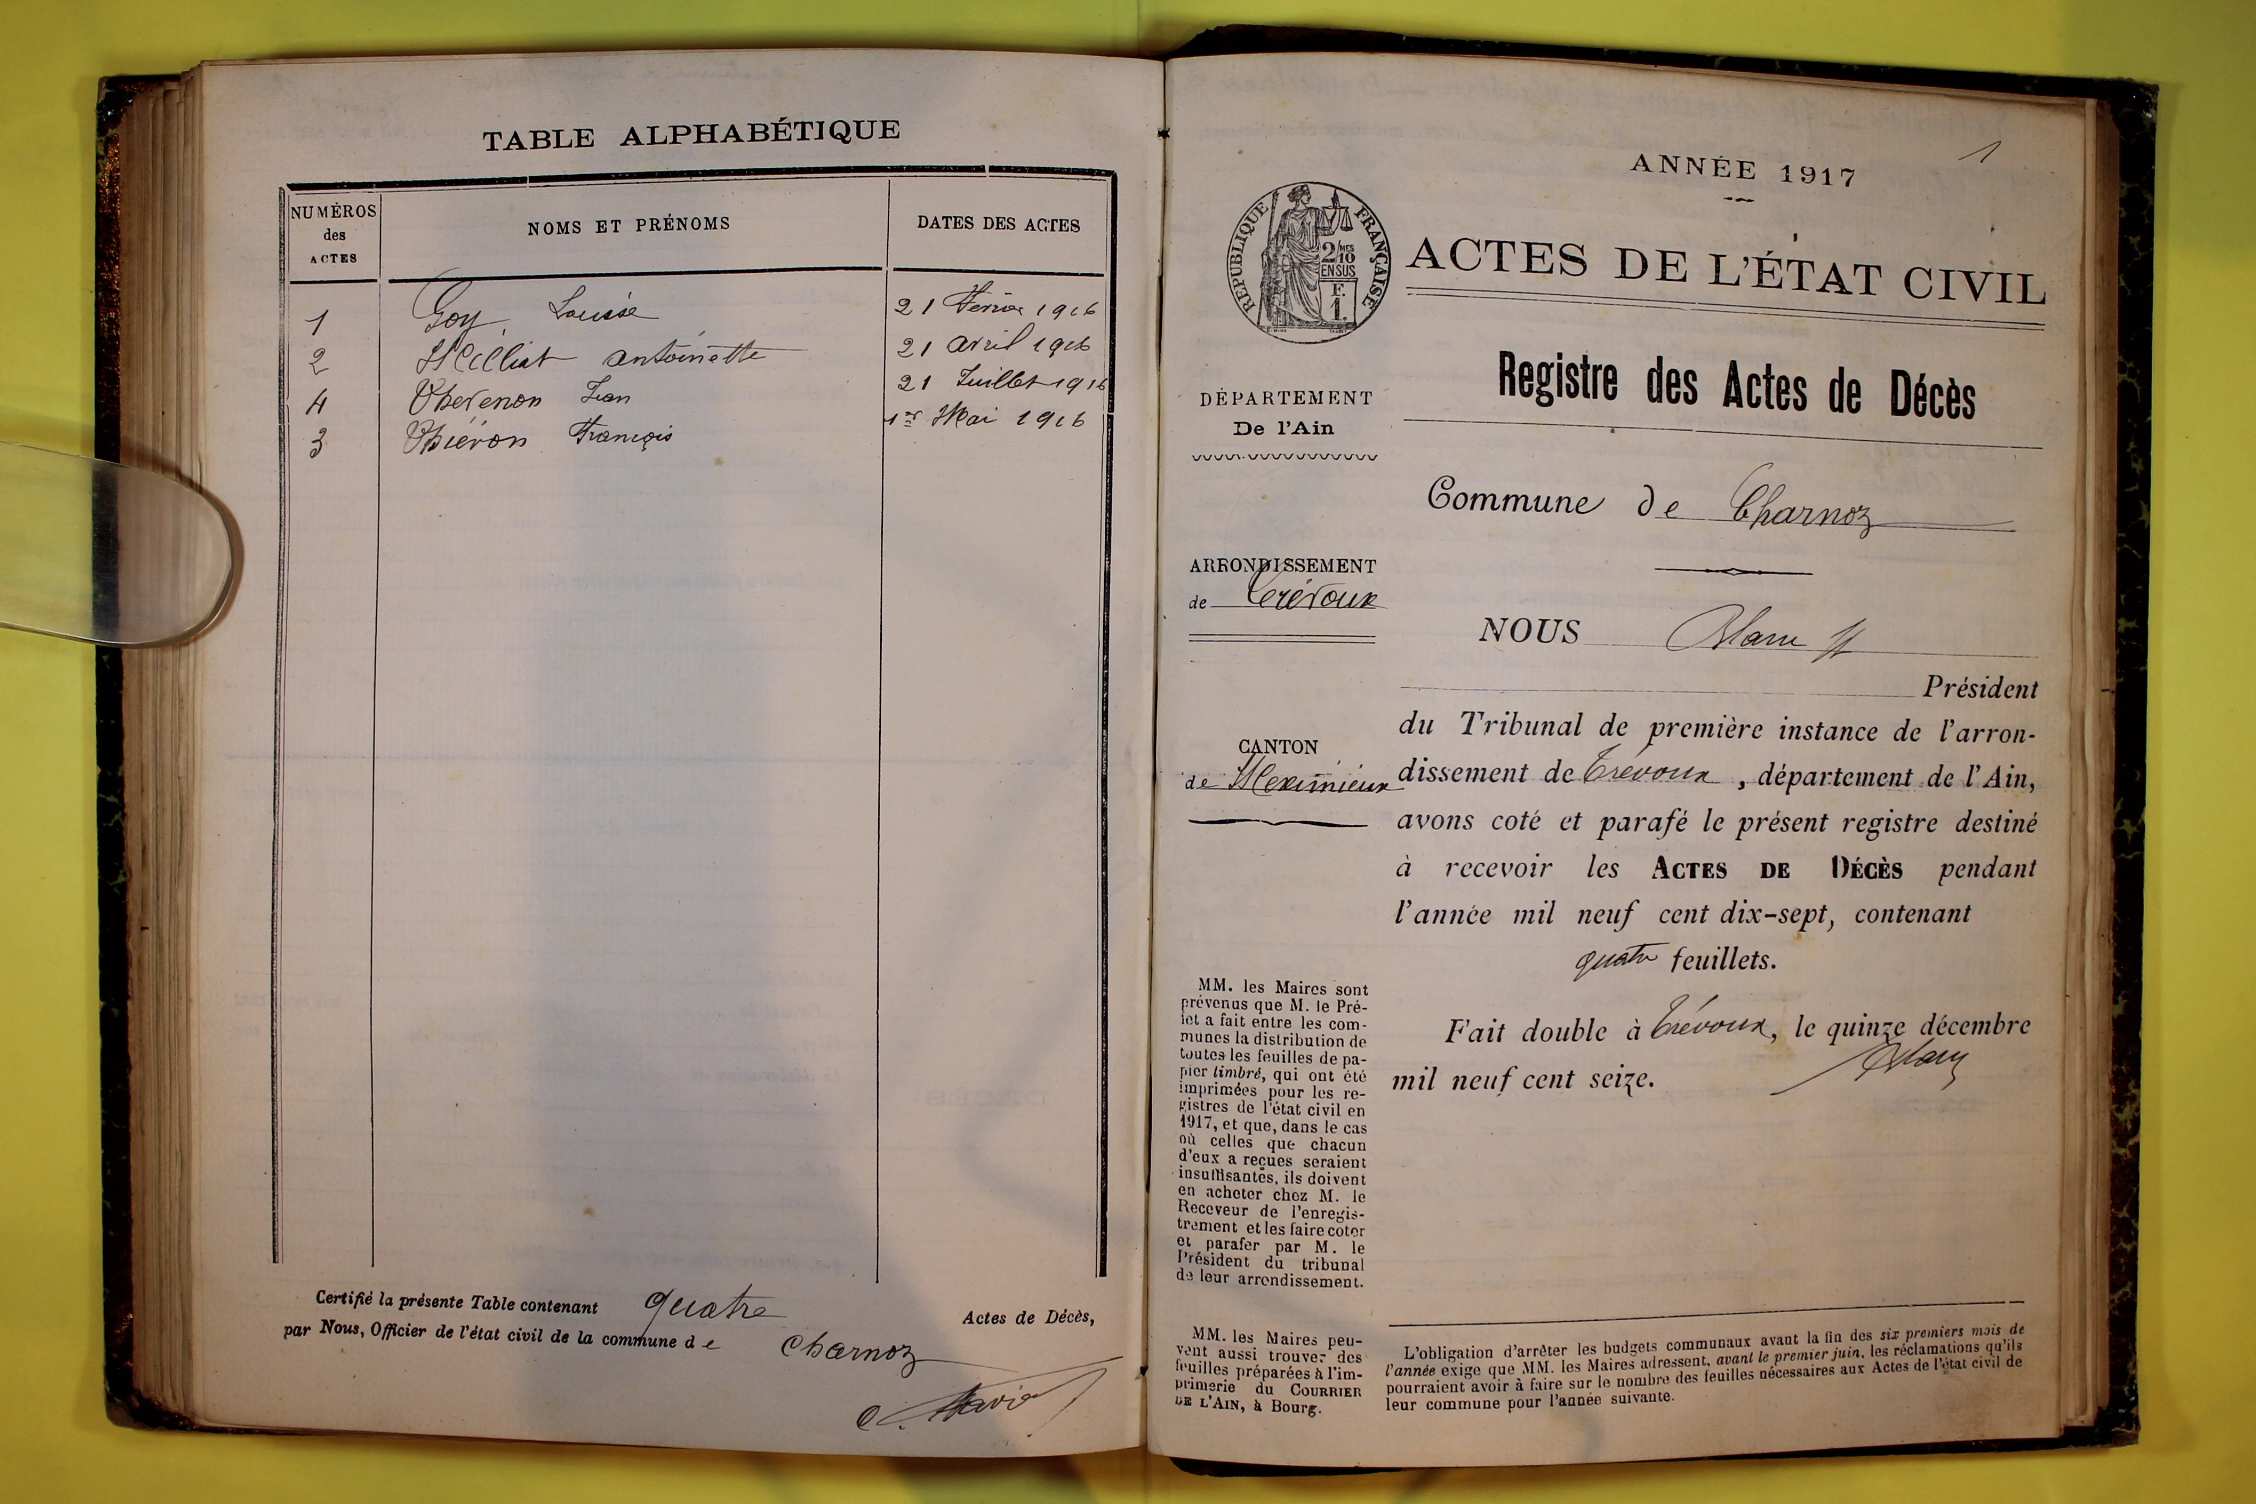 TABLE ALPHABÉTIQUE
NUMÉROS des ACTES
NOMS ET PRÉNOMS
DATES DES ACTES
1 Goy Louise 21 Février 1916
2 Milliat antoinette 21 avril 1916
4 Thévenon Jean 21 Juillet 1916
3 Thiévon François 1er Mai 1916
Certifié la présente Table contenant quatre Actes de Décès,
par Nous, Officier de l'état civil de la commune de Charnoz
1
ANNÉE 1917
RÉPUBLIQUE FRANÇAISE
2/10 MES
EN SUS
F.
1.
ACTES DE L'ÉTAT CIVIL
Registre des Actes de Décès
DÉPARTEMENT
De l'Ain
Commune de Charnoz
ARRONDISSEMENT
de Trévoux
NOUS
Président
du Tribunal de première instance de l'arron-
dissement de Trévoux, département de l'Ain,
avons coté et parafé le présent registre destiné
à recevoir les ACTES DE DÉCÈS pendant
l'année mil neuf cent dix-sept, contenant
quatre feuillets.
Fait double à Trévoux, le quinze décembre
mil neuf cent seize.
CANTON
de Meximieux
MM. les Maires sont
prévenus que M. le Pré-
fet a fait entre les com-
munes la distribution de
toutes les feuilles de pa-
pier timbré, qui ont été
imprimées pour les re-
gistres de l'état civil en
1917, et que, dans le cas
où celles que chacun
d'eux a reçues seraient
insuffisantes, ils doivent
en acheter chez M. le
Receveur de l'enregis-
trement et les faire coter
et parafer par M. le
Président du tribunal
de leur arrondissement.
MM. les Maires peu-
vent aussi trouver des
feuilles préparées à l'im-
primerie du COURRIER
DE L'AIN, à Bourg.
L'obligation d'arrêter les budgets communaux avant la fin des six premiers mois de
l'année exige que MM. les Maires adressent, avant le premier juin, les réclamations qu'ils
pourraient avoir à faire sur le nombre des feuilles nécessaires aux Actes de l'état civil de
leur commune pour l'année suivante.